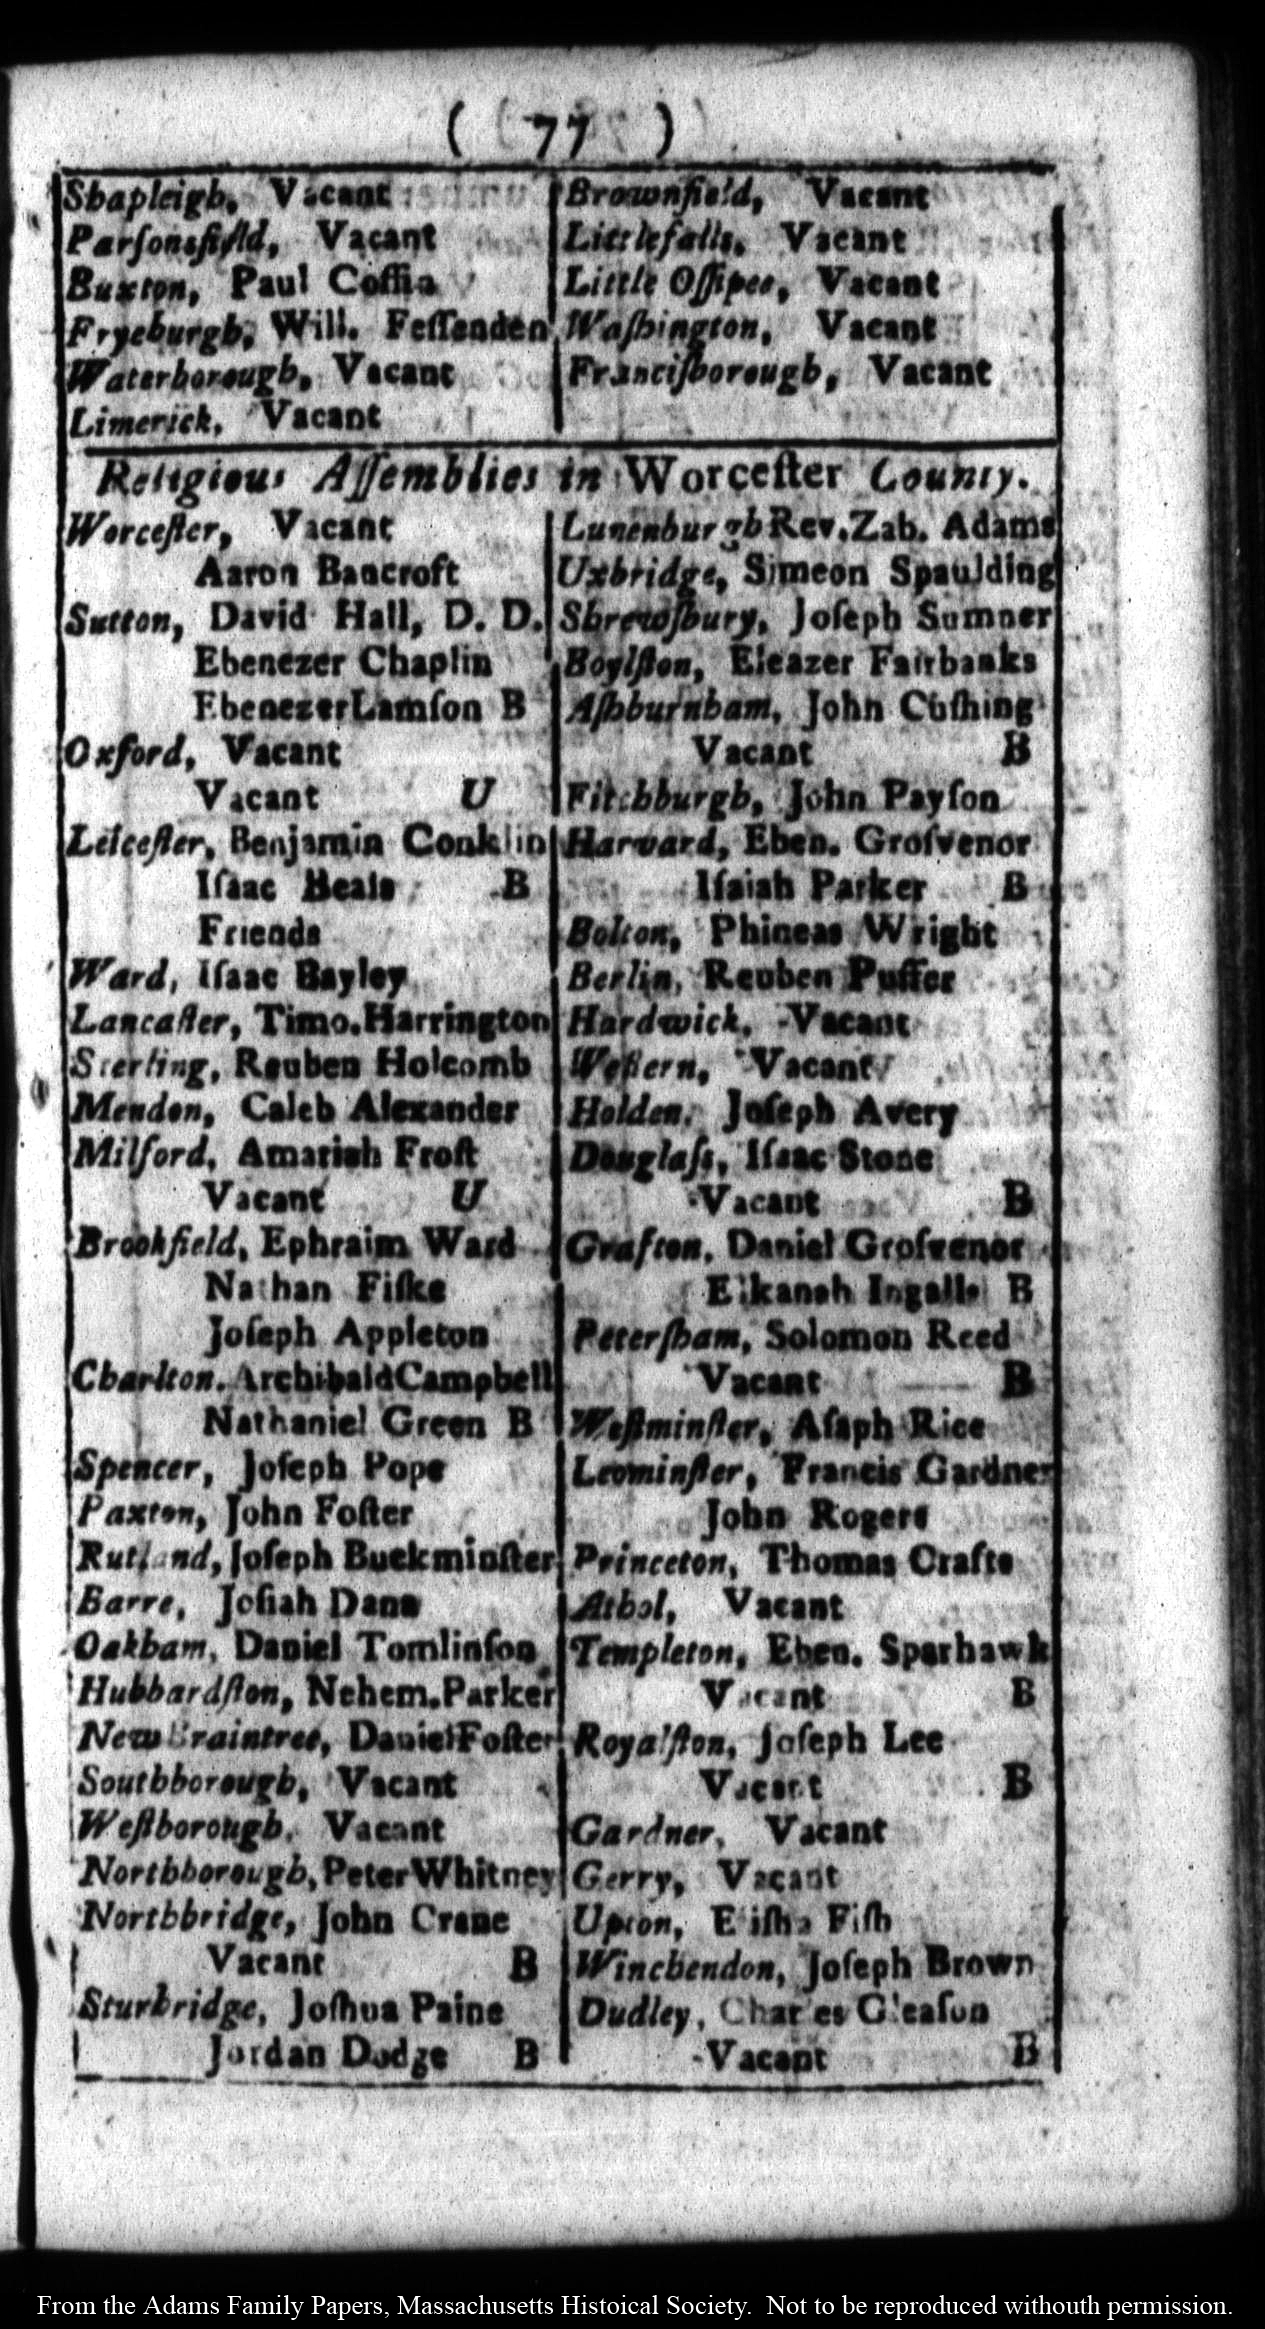 ( 77 )
Shapleigh, Vacant
Parſonsfield, Vacant
Buxton, Paul Coffin
Fryeburgh, Will. Feſſenden
Waterborough, Vacant
Limerick, Vacant
Brownfield, Vacant
Littlefalls, Vacant
Little Oſſipee, Vacant
Waſhington, Vacant
Franciſborough, Vacant
Religious Aſſemblies in Worceſter County.
Worceſter, Vacant
Aaron Bancroft
Sutton, David Hall, D. D.
Ebenezer Chaplin
Ebenezer Lamſon B
Oxford, Vacant
Vacant U
Leiceſter, Benjamin Conklin
Iſaac Beals B
Friends
Ward, Iſaac Bayley
Lancaſter, Timo. Harrington
Sterling, Reuben Holcomb
Mendon, Caleb Alexander
Milford, Amariah Froſt
Vacant U
Brookfield, Ephraim Ward
Nathan Fiſke
Joſeph Appleton
Charlton, Archibald Campbell
Nathaniel Green B
Spencer, Joſeph Pope
Paxton, John Foſter
Rutland, Joſeph Buckminſter
Barre, Joſiah Dana
Oakham, Daniel Tomlinſon
Hubbardſton, Nehem. Parker
New Braintree, Daniel Foſter
Southborough, Vacant
Weſtborough, Vacant
Northborough, Peter Whitney
Northbridge, John Crane
Vacant B
Sturbridge, Joſhua Paine
Jordan Dodge B
Lunenburgh Rev. Zab. Adams
Uxbridge, Simeon Spaulding
Shrewſbury, Joſeph Sumner
Boylſton, Eleazer Fairbanks
Aſhburnham, John Cuſhing
Vacant B
Fitchburgh, John Payſon
Harvard, Eben. Groſvenor
Iſaiah Parker B
Bolton, Phineas Wright
Berlin, Reuben Puffer
Hardwick, Vacant
Weſtern, Vacant
Holden, Joſeph Avery
Douglaſs, Iſaac Stone
Vacant B
Grafton, Daniel Groſvenor
Elkanah Ingalls B
Peterſham, Solomon Reed
Vacant B
Weſtminſter, Aſaph Rice
Leominſter, Francis Gardner
John Rogers
Princeton, Thomas Crafts
Athol, Vacant
Templeton, Eben. Sparhawk
Vacant B
Royalſton, Joſeph Lee
Vacant B
Gardner, Vacant
Gerry, Vacant
Upton, Eliſha Fiſh
Winchendon, Joſeph Brown
Dudley, Charles Gleaſon
Vacant B
From the Adams Family Papers, Massachusetts Histoical Society. Not to be reproduced withouth permission.